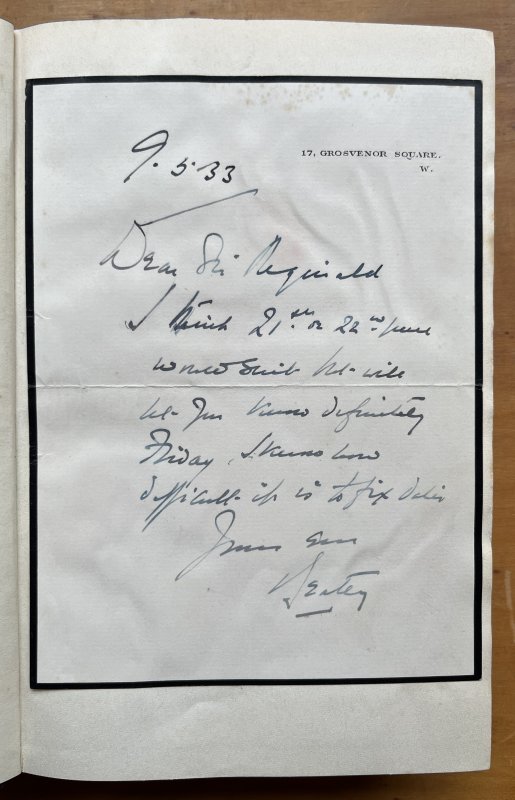 17, GROSVENOR SQUARE.
W.
9.5.33
Dear Sir Reginald
I think 21st or 22nd June
would suit but will
let you know definitely
Friday, I know how
difficult it is to fix dates
Yours ever
Beatty